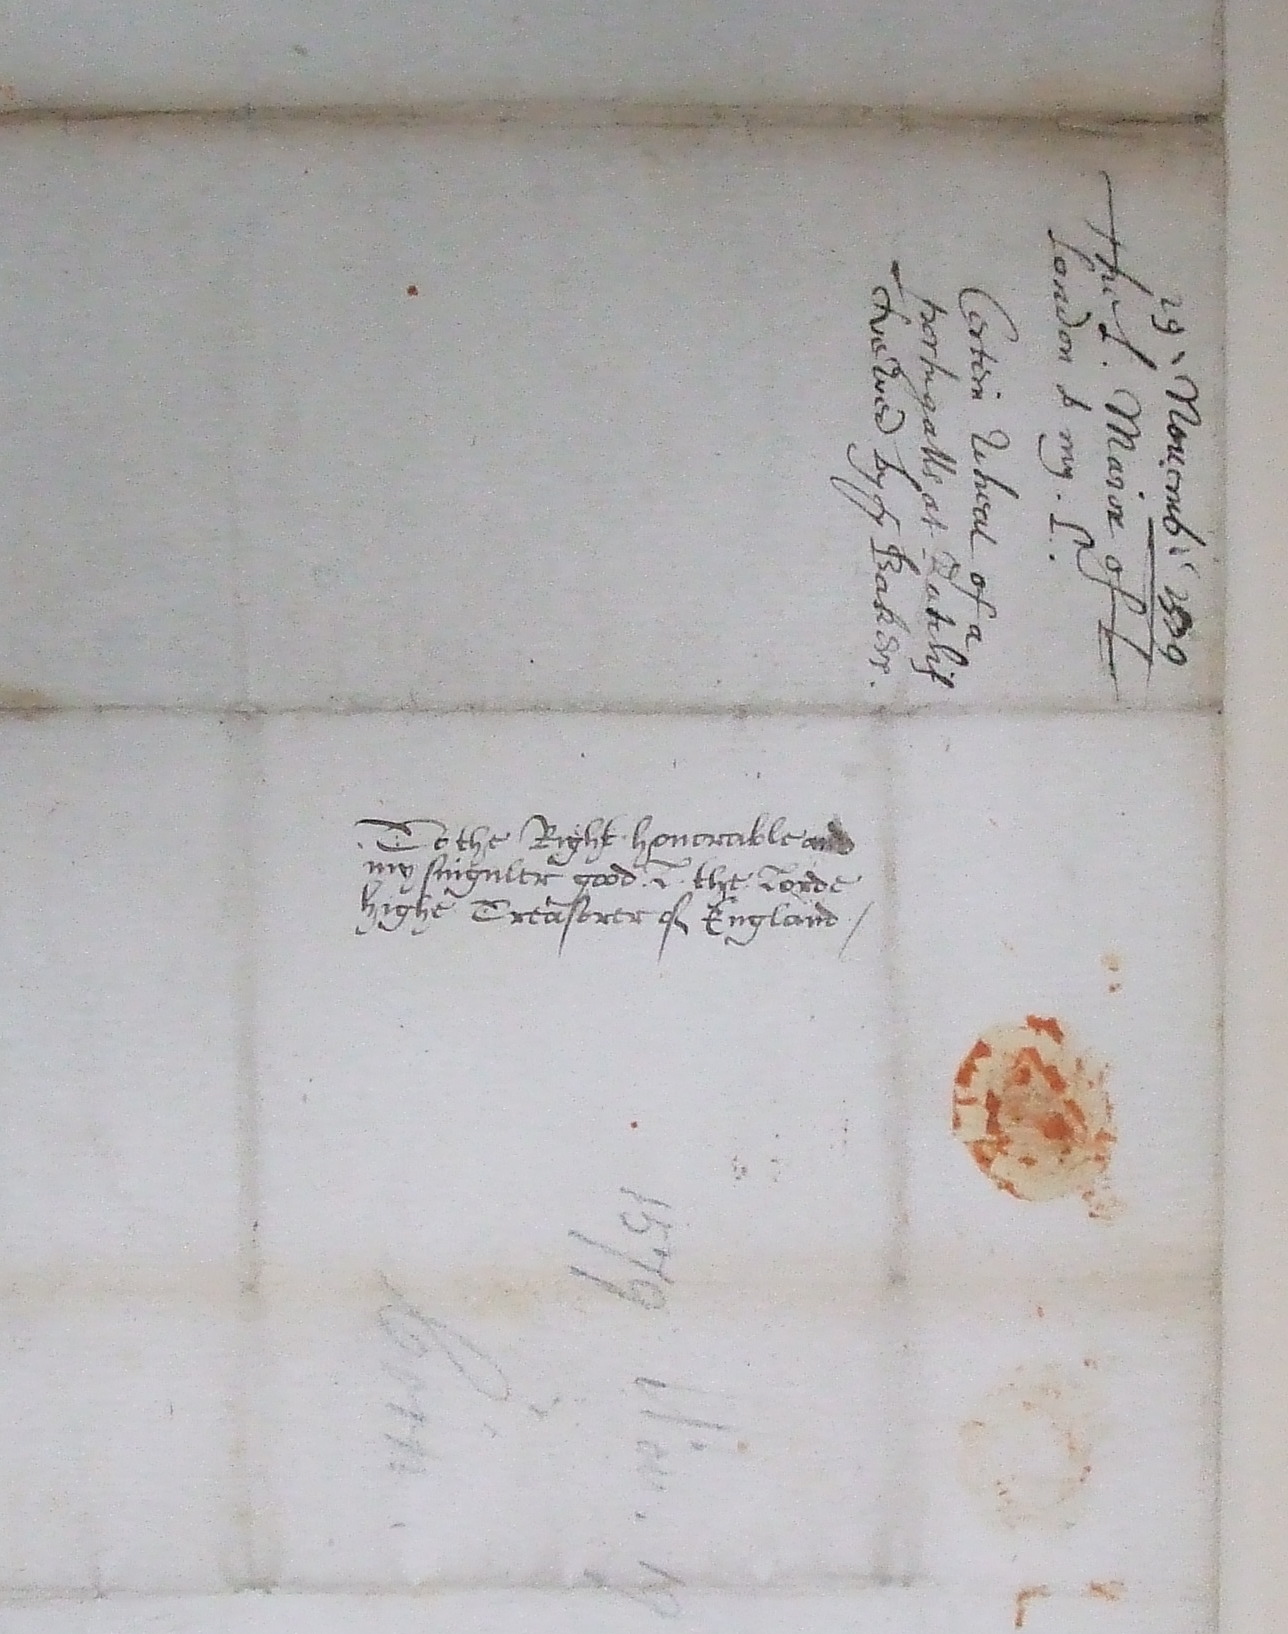 29 Nouemb: 1579
The L. Maior of
London to my. L.
Certein Wheat of a
portugalls at
viewed by ye Bakers.
To the Right honorable and
my singuler good L. the Lorde
highe Treasorer of England /
1579 Nov. 29
Corn